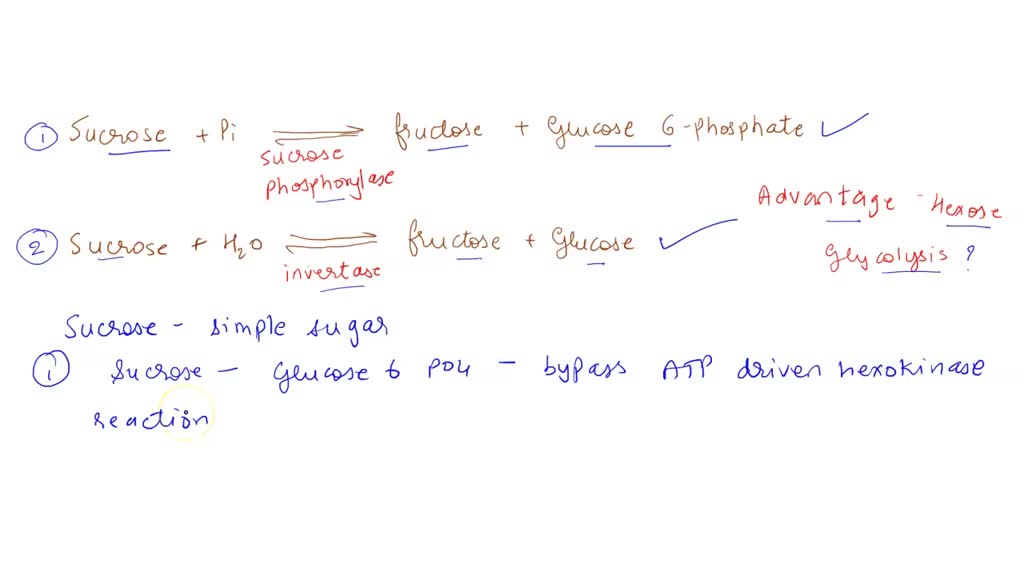 ① Sucrose + Pi ⇌ fructose + Glucose 6-phosphate ✓
sucrose
phosphorylase
Advantage - Hexose
② Sucrose + H₂O ⇌ fructose + Glucose ✓
Glycolysis ?
invertase
Sucrose - simple sugar
① Sucrose - Glucose 6 PO4 - bypass ATP driven hexokinase
reaction